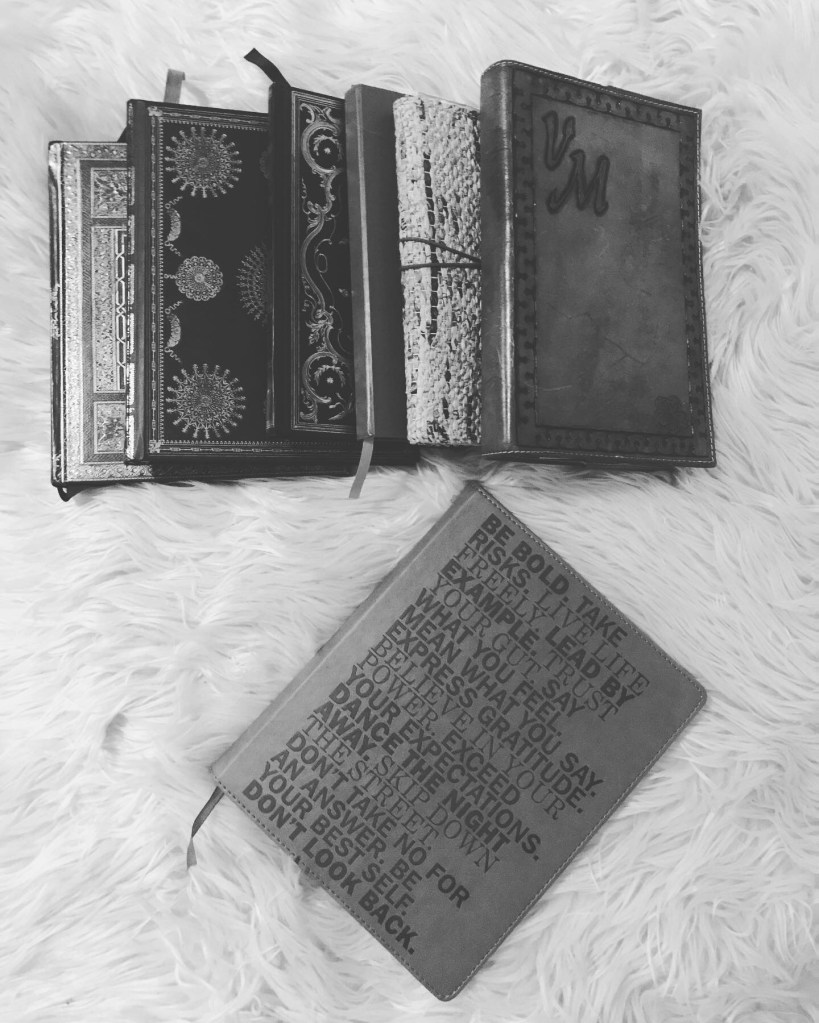 V
M
BE BOLD. TAKE
RISKS. LIVE LIFE
FREELY. LEAD BY
EXAMPLE. TRUST
YOUR GUT. SAY
WHAT YOU FEEL.
MEAN WHAT YOU SAY.
EXPRESS GRATITUDE.
BELIEVE IN YOUR
POWER. EXCEED
YOUR EXPECTATIONS.
DANCE THE NIGHT
AWAY. SKIP DOWN
THE STREET.
DON'T TAKE NO FOR
AN ANSWER. BE
YOUR BEST SELF.
DON'T LOOK BACK.